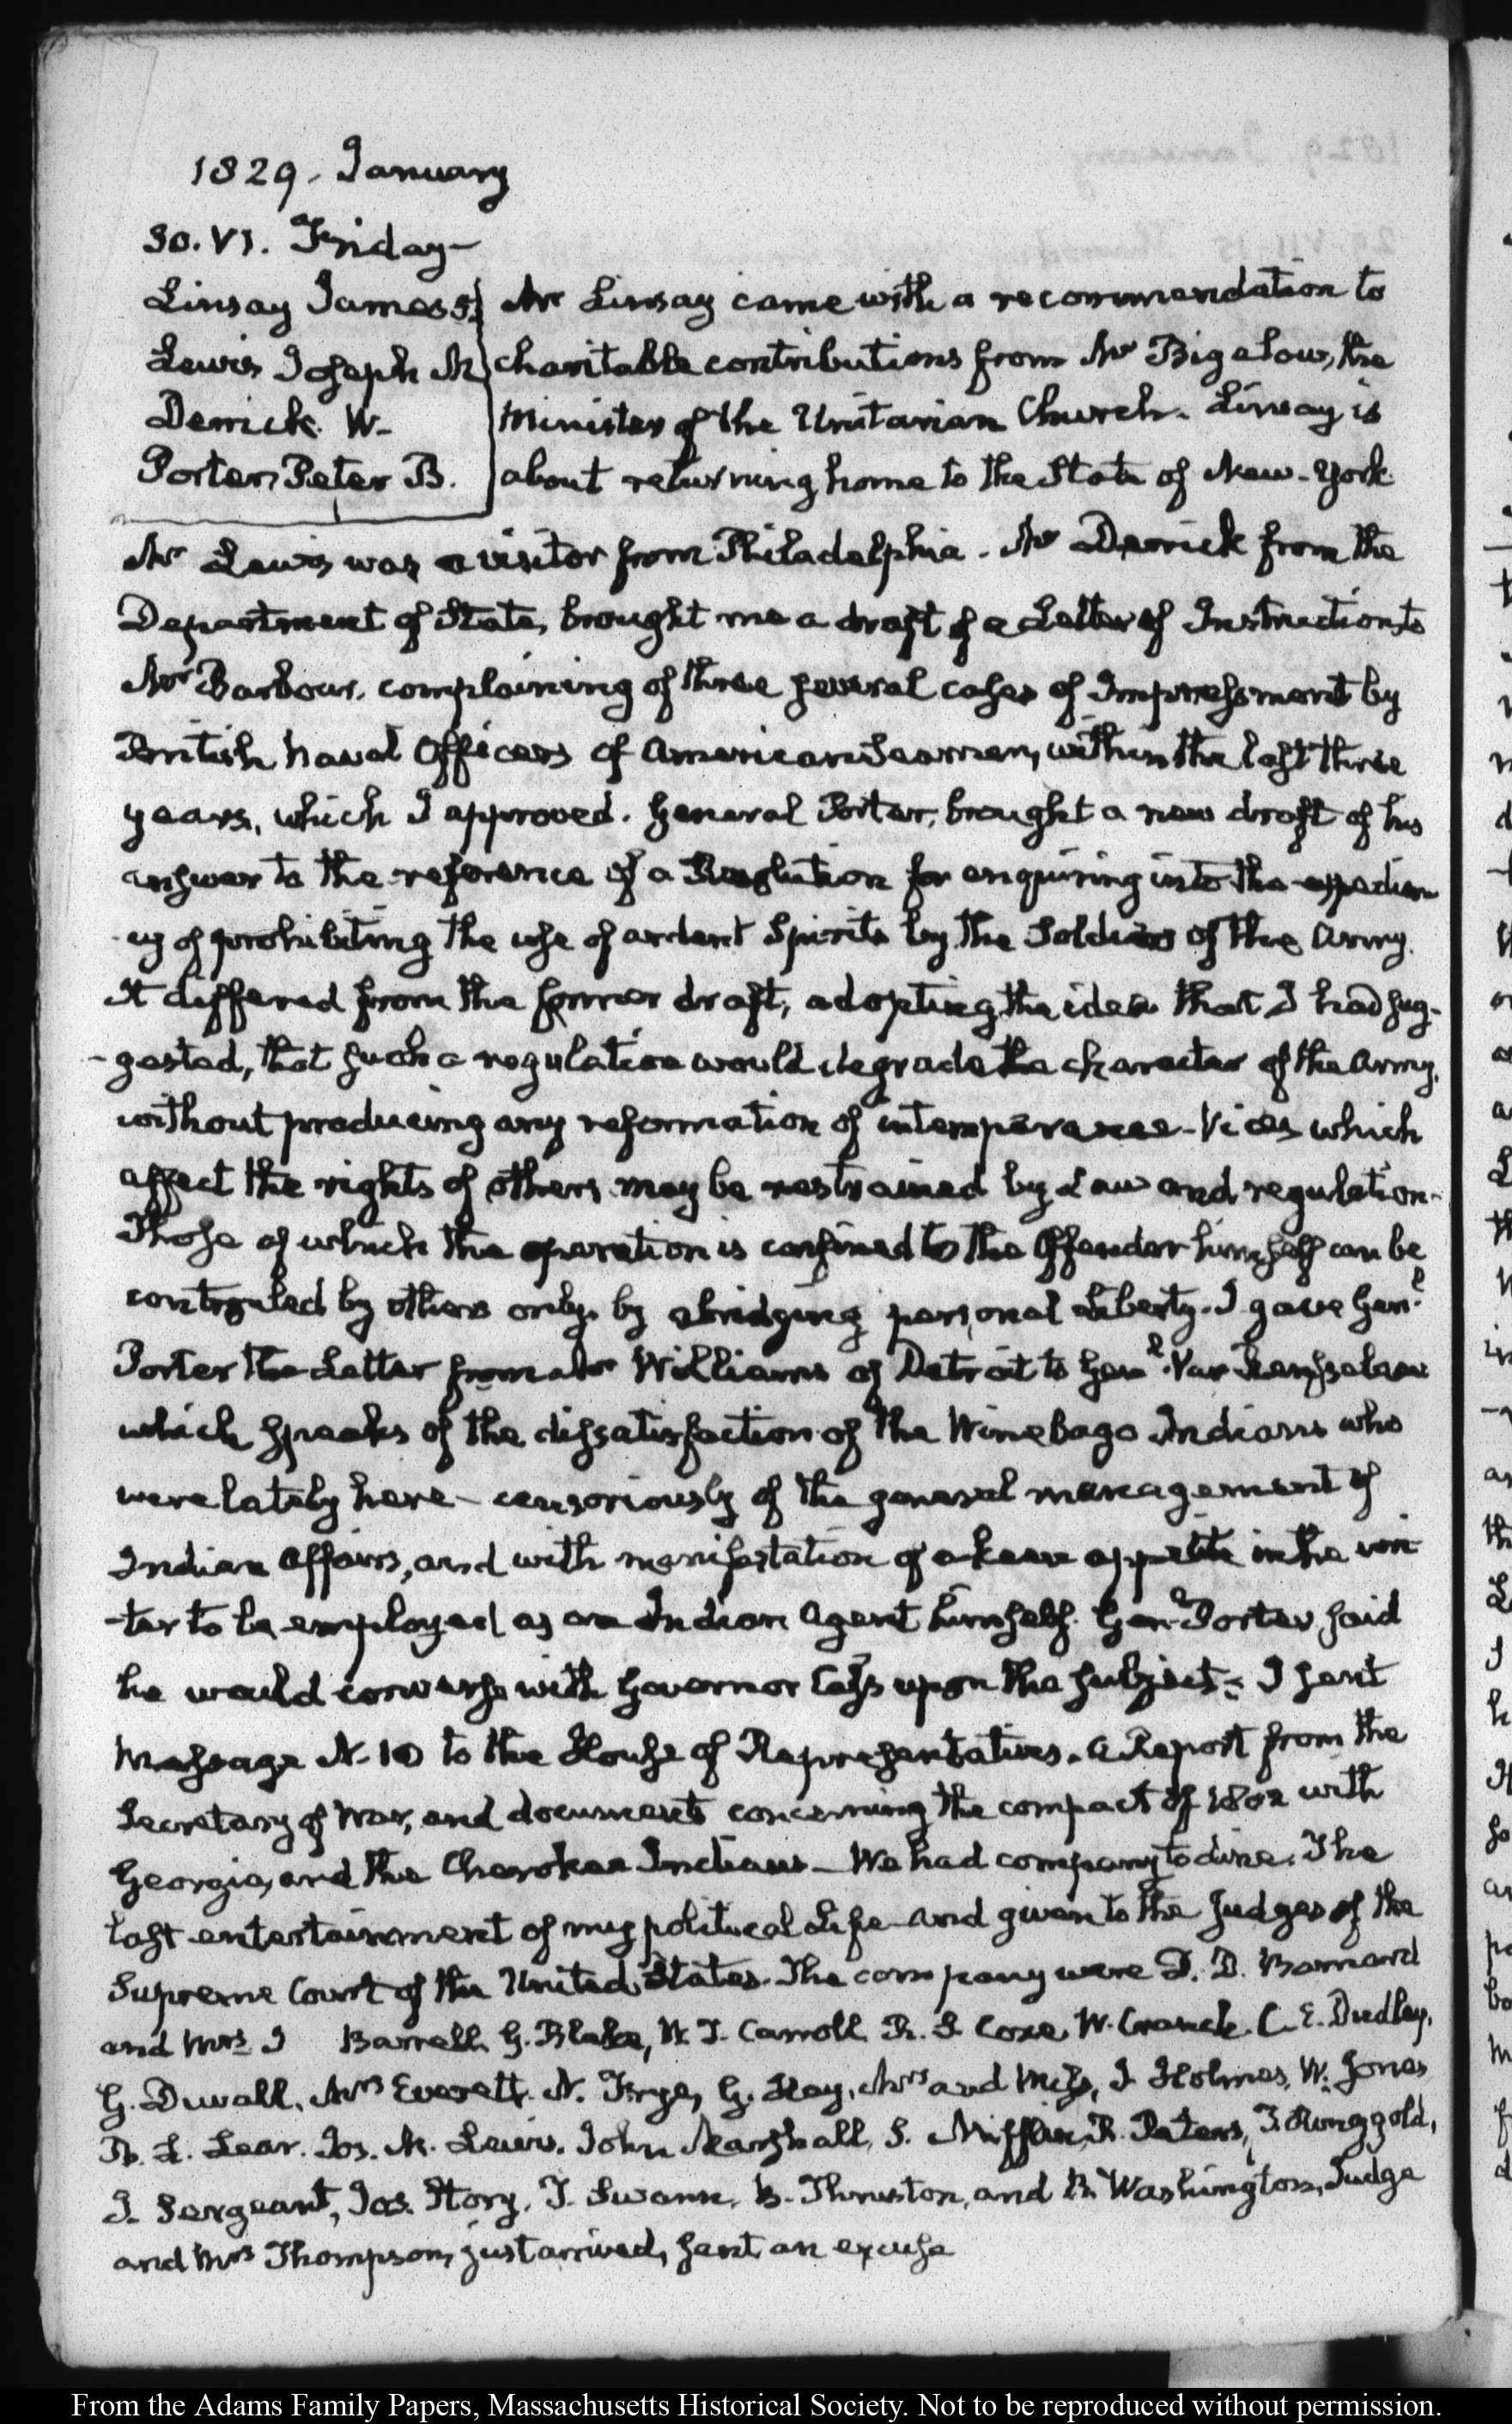 1829. January
30. VI. Friday—
Linsay James S. Mr Linsay came with a recommendation to
Lewis Joseph M charitable contributions from Mr Bigelow, the
Derrick. W. Minister of the Unitarian Church. Linsay is
Porter, Peter B. about returning home to the State of New-York
Mr Lewis was a visitor from Philadelphia. Mr Derrick from the
Department of State, brought me a draft of a Letter of Instructions to
Mr Barbour, complaining of three several cases of Impressment by
British Naval Officers of American Seamen, within the last three
years, which I approved. General Porter, brought a new draft of his
answer to the reference of a Resolution for enquiring into the expedien
-cy of prohibiting the use of ardent Spirits by the Soldiers of the Army.
It differed from the former draft, adopting the idea that I had sug-
-gested, that such a regulation would degrade the character of the Army,
without producing any reformation of intemperance—Vices which
affect the rights of others may be restrained by Law and regulation—
Those of which the operation is confined to the Offender himself can be
controuled by others only by abridging personal Liberty. I gave Genl
Porter the Letter from Mr Williams of Detroit to Genl Van Rensselaer
which speaks of the dissatisfaction of the Winebago Indians who
were lately here—censoriously of the general management of
Indian Affairs, and with manifestation of a keen appetite in the wri
-ter to be employed as an Indian Agent himself. Genl Porter, said
he would converse with Governor Cass upon the subject—I sent
Message N. 10 to the House of Representatives. A Report from the
Secretary of War, and documents concerning the compact of 1802 with
Georgia, and the Cherokee Indians—We had company to dine. The
last entertainment of my political Life—and given to the Judges of the
Supreme Court of the United States. The company were D. D. Barnard
and Mrs. J Barrell. G. Blake, W. T. Carroll. R. S. Coxe, W. Cranch. C. E. Dudley,
G. Duvall, Mrs Everett. N. Frye, G. Hay, Mrs and Miss, J Holmes, W. Jones
B. L. Lear. Jos. M. Lewis. John Marshall, S. Mifflin, R. Peters, T. Ringgold,
J. Sergeant, Jos. Story, T. Swann, B. Thruston, and B. Washington, Judge
and Mrs Thompson, just arrived, sent an excuse
From the Adams Family Papers, Massachusetts Historical Society. Not to be reproduced without permission.